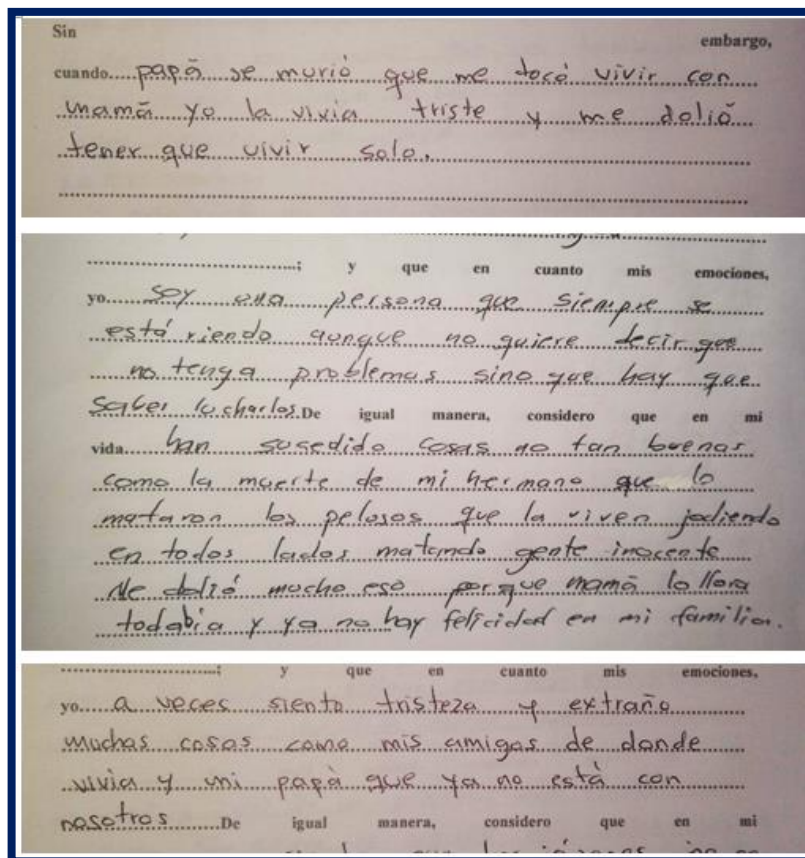 Sin embargo,
cuando papá se murió que me tocó vivir con
mamá yo la vivia triste y me dolió
tener que vivir solo.
; y que en cuanto mis emociones,
yo soy una persona que siempre se
está riendo aunque no quiere decir que
no tenga problemas sino que hay que
saber lucharlos. De igual manera, considero que en mi
vida han susedido cosas no tan buenas
como la muerte de mi hermano que lo
mataron los pelusos que la viven jodiendo
en todos lados matando gente inocente
Me dolió mucho eso porque mamá lo llora
todabia y ya no hay felicidad en mi familia.
; y que en cuanto mis emociones,
yo a veces siento tristeza y extraño
muchas cosas como mis amigos de donde
vivia y mi papá que ya no está con
nosotros De igual manera, considero que en mi